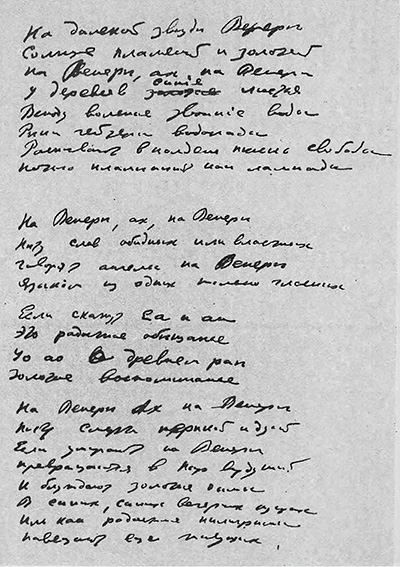 На далекой звезде Венере
Солнце пламенней и золотей
На Венере, ах, на Венере
У деревьев синие листья
Всюду вольные звонкие воды
Реки гейзеры водопады
Распевают в полдень песнь свободы
Ночью пламенеют как лампады
На Венере, ах, на Венере
Нету слов обидных или властных
Говорят ангелы на Венере
Языком из одних только гласных
Если скажут Еа и аи
Это радостное обещанье
Уо ао о древнем рае
Золотое воспоминанье
На Венере Ах на Венере
Нету смерти терпкой и душной
Если умирают на Венере
Превращаются в пар воздушный
И блуждают золотые дымы
В синих, синих вечерних кущах
Иль как радостные пилигримы
Навещают еще живущих